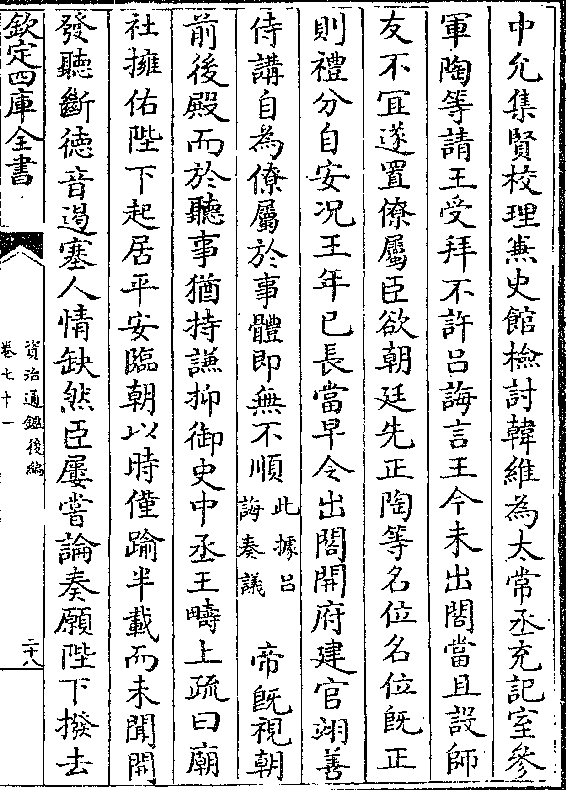 中允集賢校理兼史館檢討韓維為太常丞充記室參
軍陶等請王受拜不許吕誨言王今未出閤當且設師
友不宜遂置僚屬臣欲朝廷先正陶等名位名位既正
則禮分自安况王年已長當早令出閤開府建官翊善
侍講自為僚屬於事體即無不順此據吕
誨奏議
帝既視朝
前後殿而於聽事猶持謙抑御史中丞王疇上疏曰廟
社擁佑陛下起居平安臨朝以時僅踰半載而未聞開
發聽斷德音遏塞人情缺然臣屢嘗論奏願陛下撥去
欽定四庫全書
資治通鑑後編
卷七十一
二十八